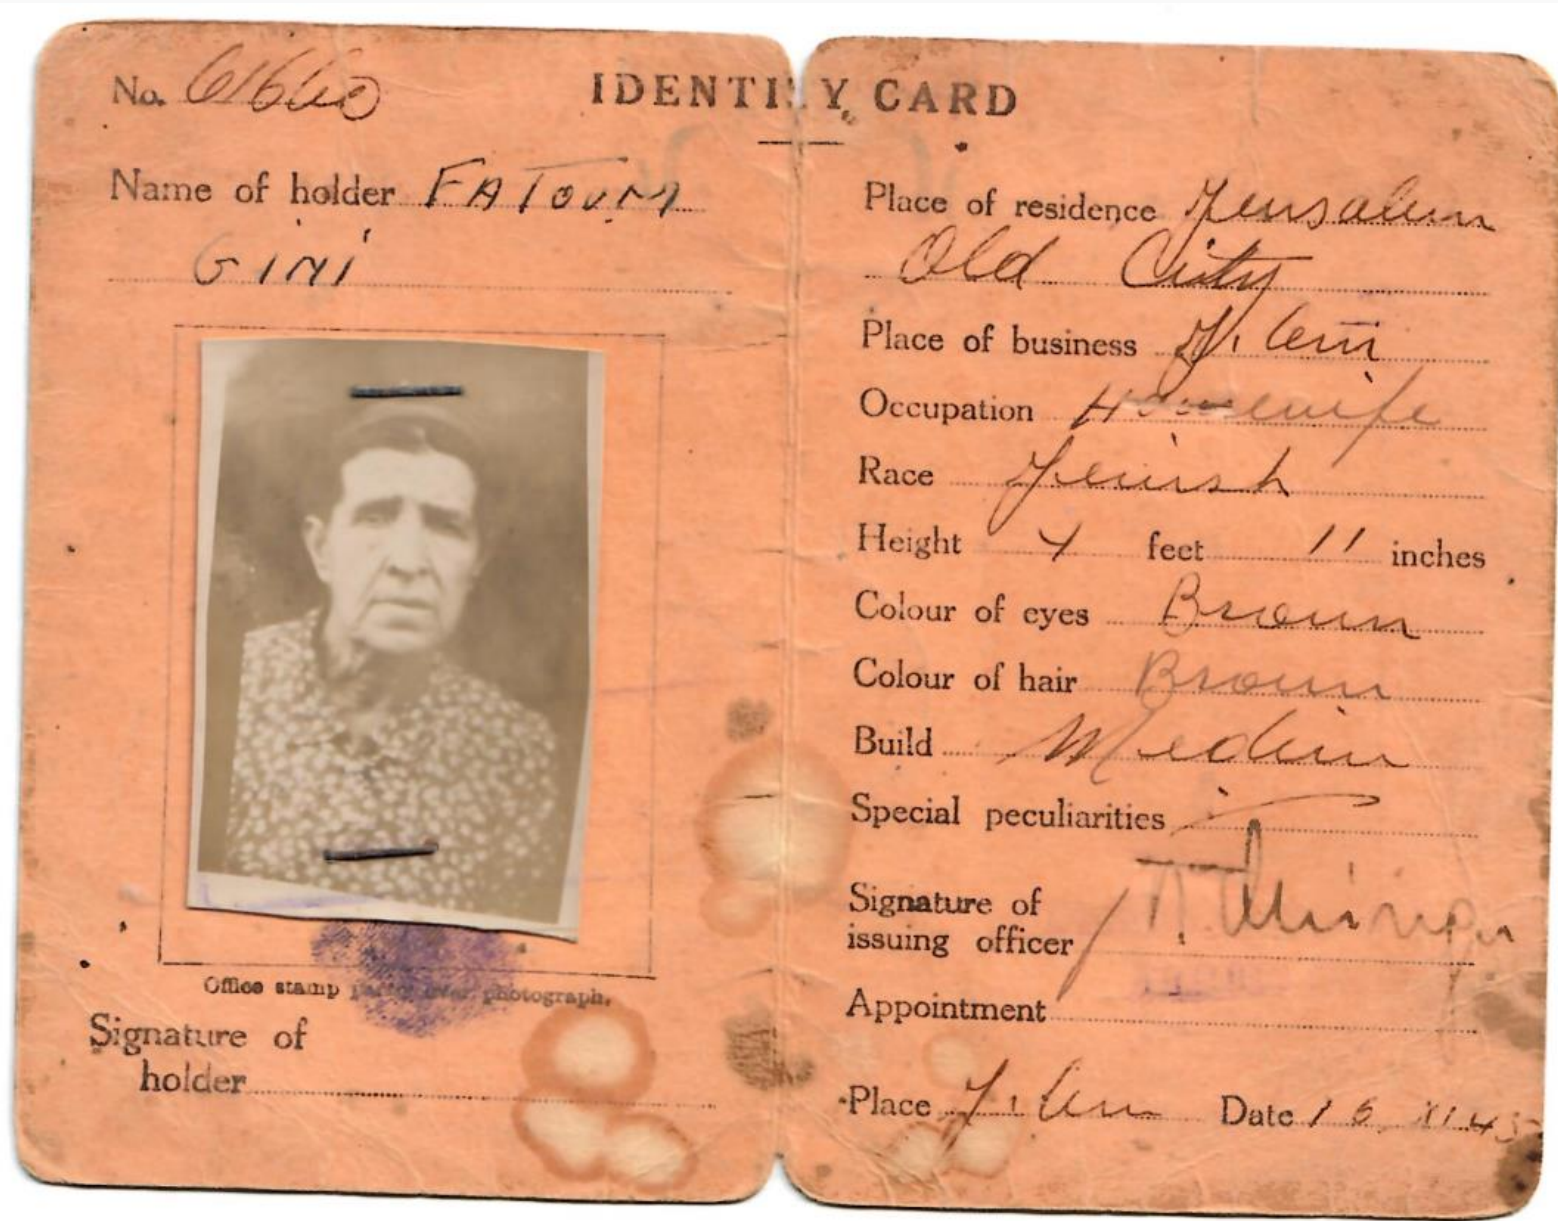 No. 61660
IDENTITY CARD
Name of holder FATOUM
GINI
Office stamp partly over photograph.
Signature of
holder
Place of residence Jerusalem
Old City
Place of business J. lem
Occupation Housewife
Race Jewish
Height 4 feet 11 inches
Colour of eyes Brown
Colour of hair Brown
Build Medium
Special peculiarities
Signature of
issuing officer
Appointment
Place J. lem Date 16 XI 43